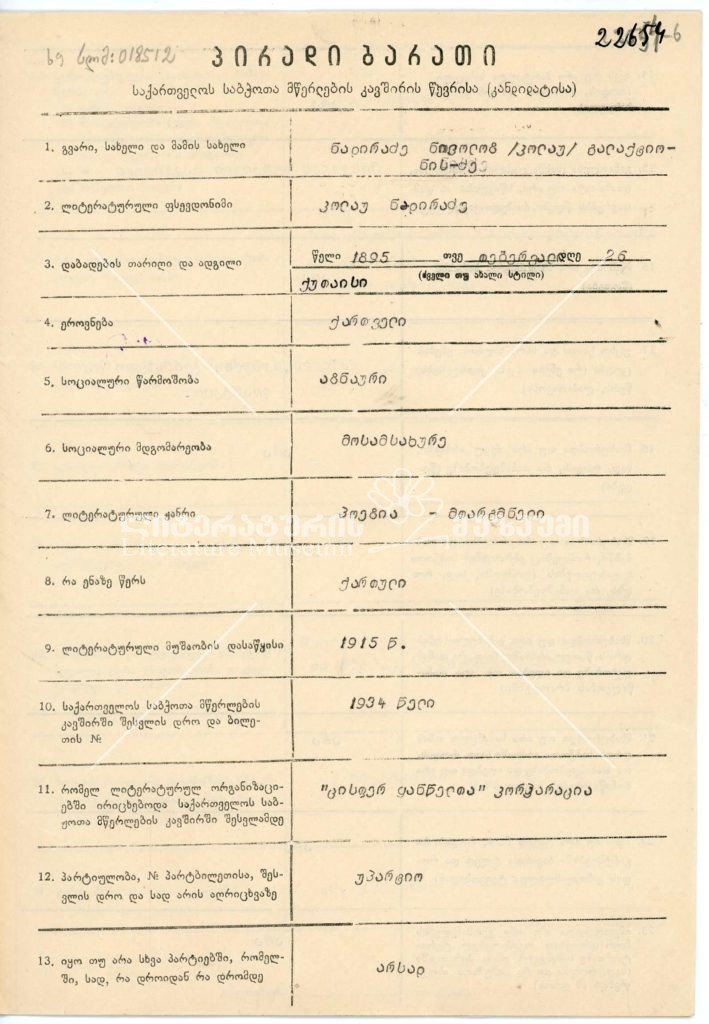 ხე სლმ: 018512
22654
6
პირადი ბარათი
საქართველოს საბჭოთა მწერლების კავშირის წევრისა (კანდიდატისა)
1. გვარი, სახელი და მამის სახელი
ნადირაძე ნიკოლოზ /კოლაუ/ გალაქტიო-
ნის-ძე
2. ლიტერატურული ფსევდონიმი
კოლაუ ნადირაძე
3. დაბადების თარიღი და ადგილი
წელი 1895 თვე თებერვალი დღე 26
(ძველი თუ ახალი სტილი)
ქუთაისი
4. ეროვნება
ქართველი
5. სოციალური წარმოშობა
აზნაური
6. სოციალური მდგომარეობა
მოსამსახურე
7. ლიტერატურული ჟანრი
პოეზია - მთარგმნელი
ლიტერატურის მუზეუმი
Literature Museum
8. რა ენაზე წერს
ქართული
9. ლიტერატურული მუშაობის დასაწყისი
1915 წ.
10. საქართველოს საბჭოთა მწერლების
კავშირში შესვლის დრო და ბილე-
თის №
1934 წელი
11. რომელ ლიტერატურულ ორგანიზაცი-
ებში ირიცხებოდა საქართველოს საბ-
ჭოთა მწერლების კავშირში შესვლამდე
"ცისფერ ყანწელთა" კორპარაცია
12. პარტიულობა, № პარტბილეთისა, შეს-
ვლის დრო და სად არის აღრიცხვაზე
უპარტიო
13. იყო თუ არა სხვა პარტიებში, რომელ-
ში, სად, რა დროიდან რა დრომდე
არსად